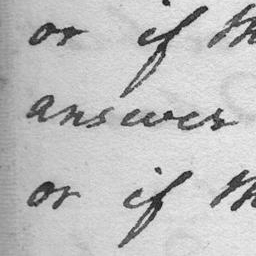 or if th
answer
or if th